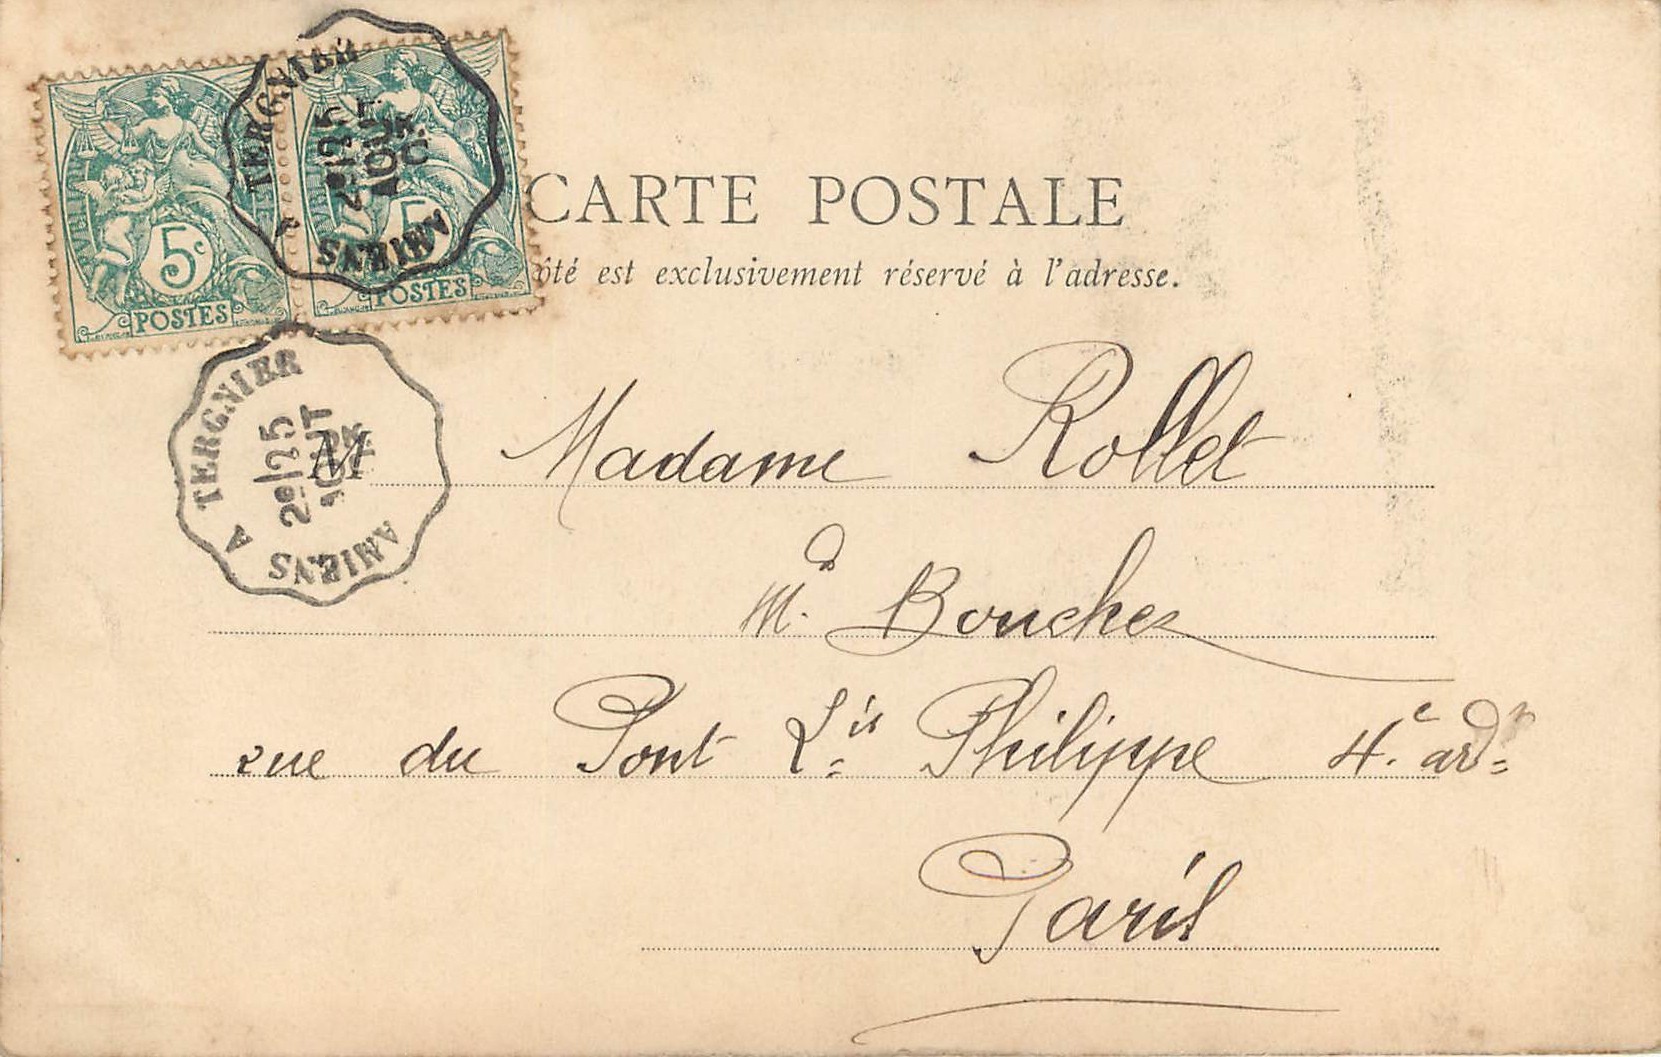 CARTE POSTALE
ôté est exclusivement réservé à l'adresse.
5c
POSTES
5
POSTES
TERGNIER A AMIENS
2e/25
AOUT
TERGNIER A AMIENS
2e/25
AOUT
M Madame Rollet
Md. Boucher
rue du Pont Lis Philippe 4.e ardt
Paris